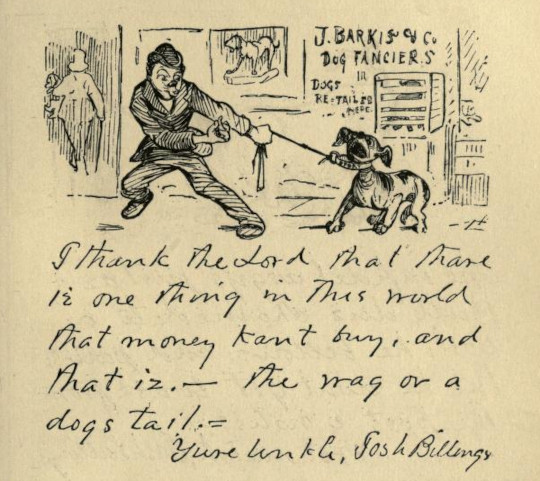 J. BARKIS & Co
DOG FANCIERS
DOGS
RE-TAILED
HERE.
I thank the Lord that thare
iz one thing in this world
that money kant buy, and
that iz.— the wag ov a
dogs tail.=
Yure Unkle, Josh Billings